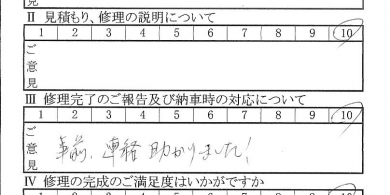 見
Ⅱ 見積もり、修理の説明について
1 2 3 4 5 6 7 8 9 10
ご意見
Ⅲ 修理完了のご報告及び納車時の対応について
1 2 3 4 5 6 7 8 9 10
ご意見
事前、連絡 助かりました!
Ⅳ 修理の完成のご満足度はいかがですか